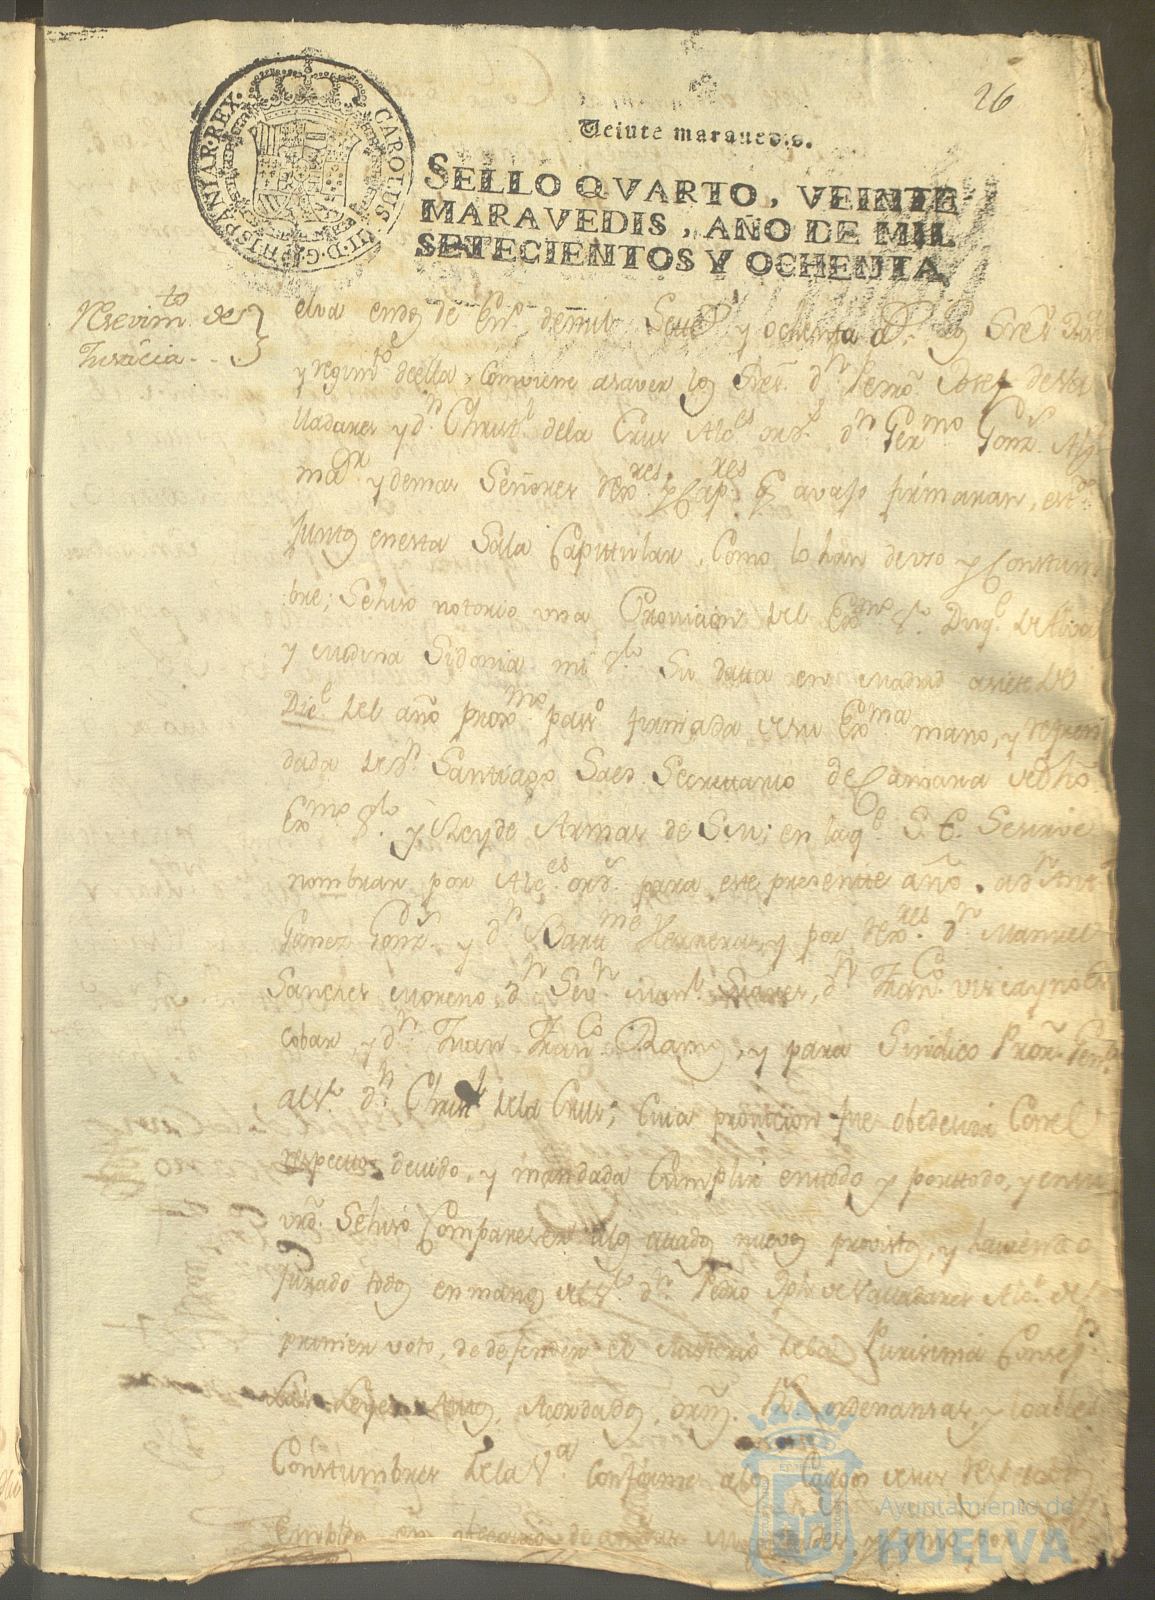 26
CAROLUS III D G HISPANYAR REX
Veinte marauedis.
SELLO QVARTO, VEINTE
MARAVEDIS, AÑO DE MIL
SETECIENTOS Y OCHENTA
Resevim.to de
Justicia
elva en dos de En.o de mil Settez.s y ochenta a.s los Sres.
y regim.to de ella, combiene a saver los Sres. d.n Pedro Josef de Va
lladares y d.n Christ.l de la Cruz Alc.es ord.s d.n Ger.mo Gonz.
m.or y demas Señores Rex.res y Cap.res q.e avajo firmaran, est.do
Juntos en esta Sala Capittular, como lo han de uso y Constum
bre; Se hiso notorio una Provicion del Ex.mo S.or Duq.e de Alva
y Medina Sidonia mi S.or Su datta en Madrid a siete de
Dic.e del año prox.mo pas.o firmada de su Ex.ma mano, y refren
dada de d.n Santiago Saes Secrettario de Camara de dho
Ex.mo S.or y Rey de Armas de S.M; en la q.e S. E. Se sirve
nombrar por Alc.es ord.s para este presente año a d.n Ant.o
Gomez Gonz. y d.n Bartt.me Herrera, y por Rex.res d.n Manuel
Sanches Moreno, d.n Seb.n Man.l Suares, d.n Fran.co Viscayno Es
cobar, y d.n Juan Fran.co Ramos, y para Sindico Pror. Gen.l
al S.or d.n Christ.l de la Cruz; Cuia provicion fue obedesida Con el
respectto devido, y mandada Cumplir en todo y por ttodo, y en su
vrd. Se hiso Compareser a los cittados nuevos provistos, y haviendo
Jurado todos en manos del S.or d.n Pedro Jph de Valladares Alc.e de
primer voto, de defender el Misterio de la Purisima Consep.n
Las Leyes Autos Acordados, orn.s Rs. ordenansas, y loables
Constumbres de la V.a conforme a los Cargos de sus respectos